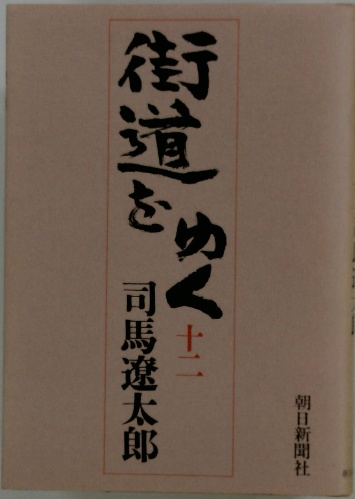 街道をゆく
十二
司馬遼太郎
朝日新聞社